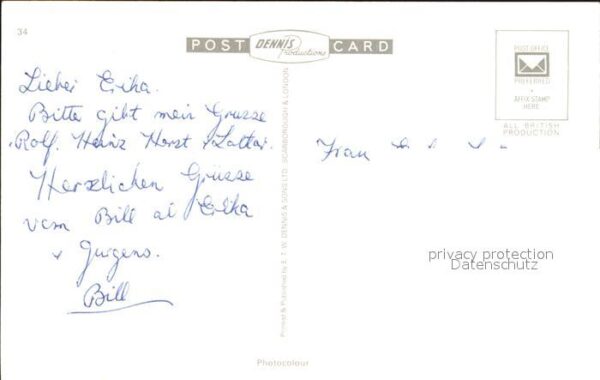 34
POST DENNIS Productions CARD
POST OFFICE
PREFERRED
AFFIX STAMP
HERE
ALL BRITISH
PRODUCTION
Lieber Erika.
Bitte gibt mein Grusse
Rolf. Heinz Horst + Lottar.
Herzlichen Grüsse
vom Bill at Erika
+ Jurgens.
Bill
Frau
privacy protection
Datenschutz
Printed & Published by E. T. W. DENNIS & SONS LTD. SCARBOROUGH & LONDON
Photocolour